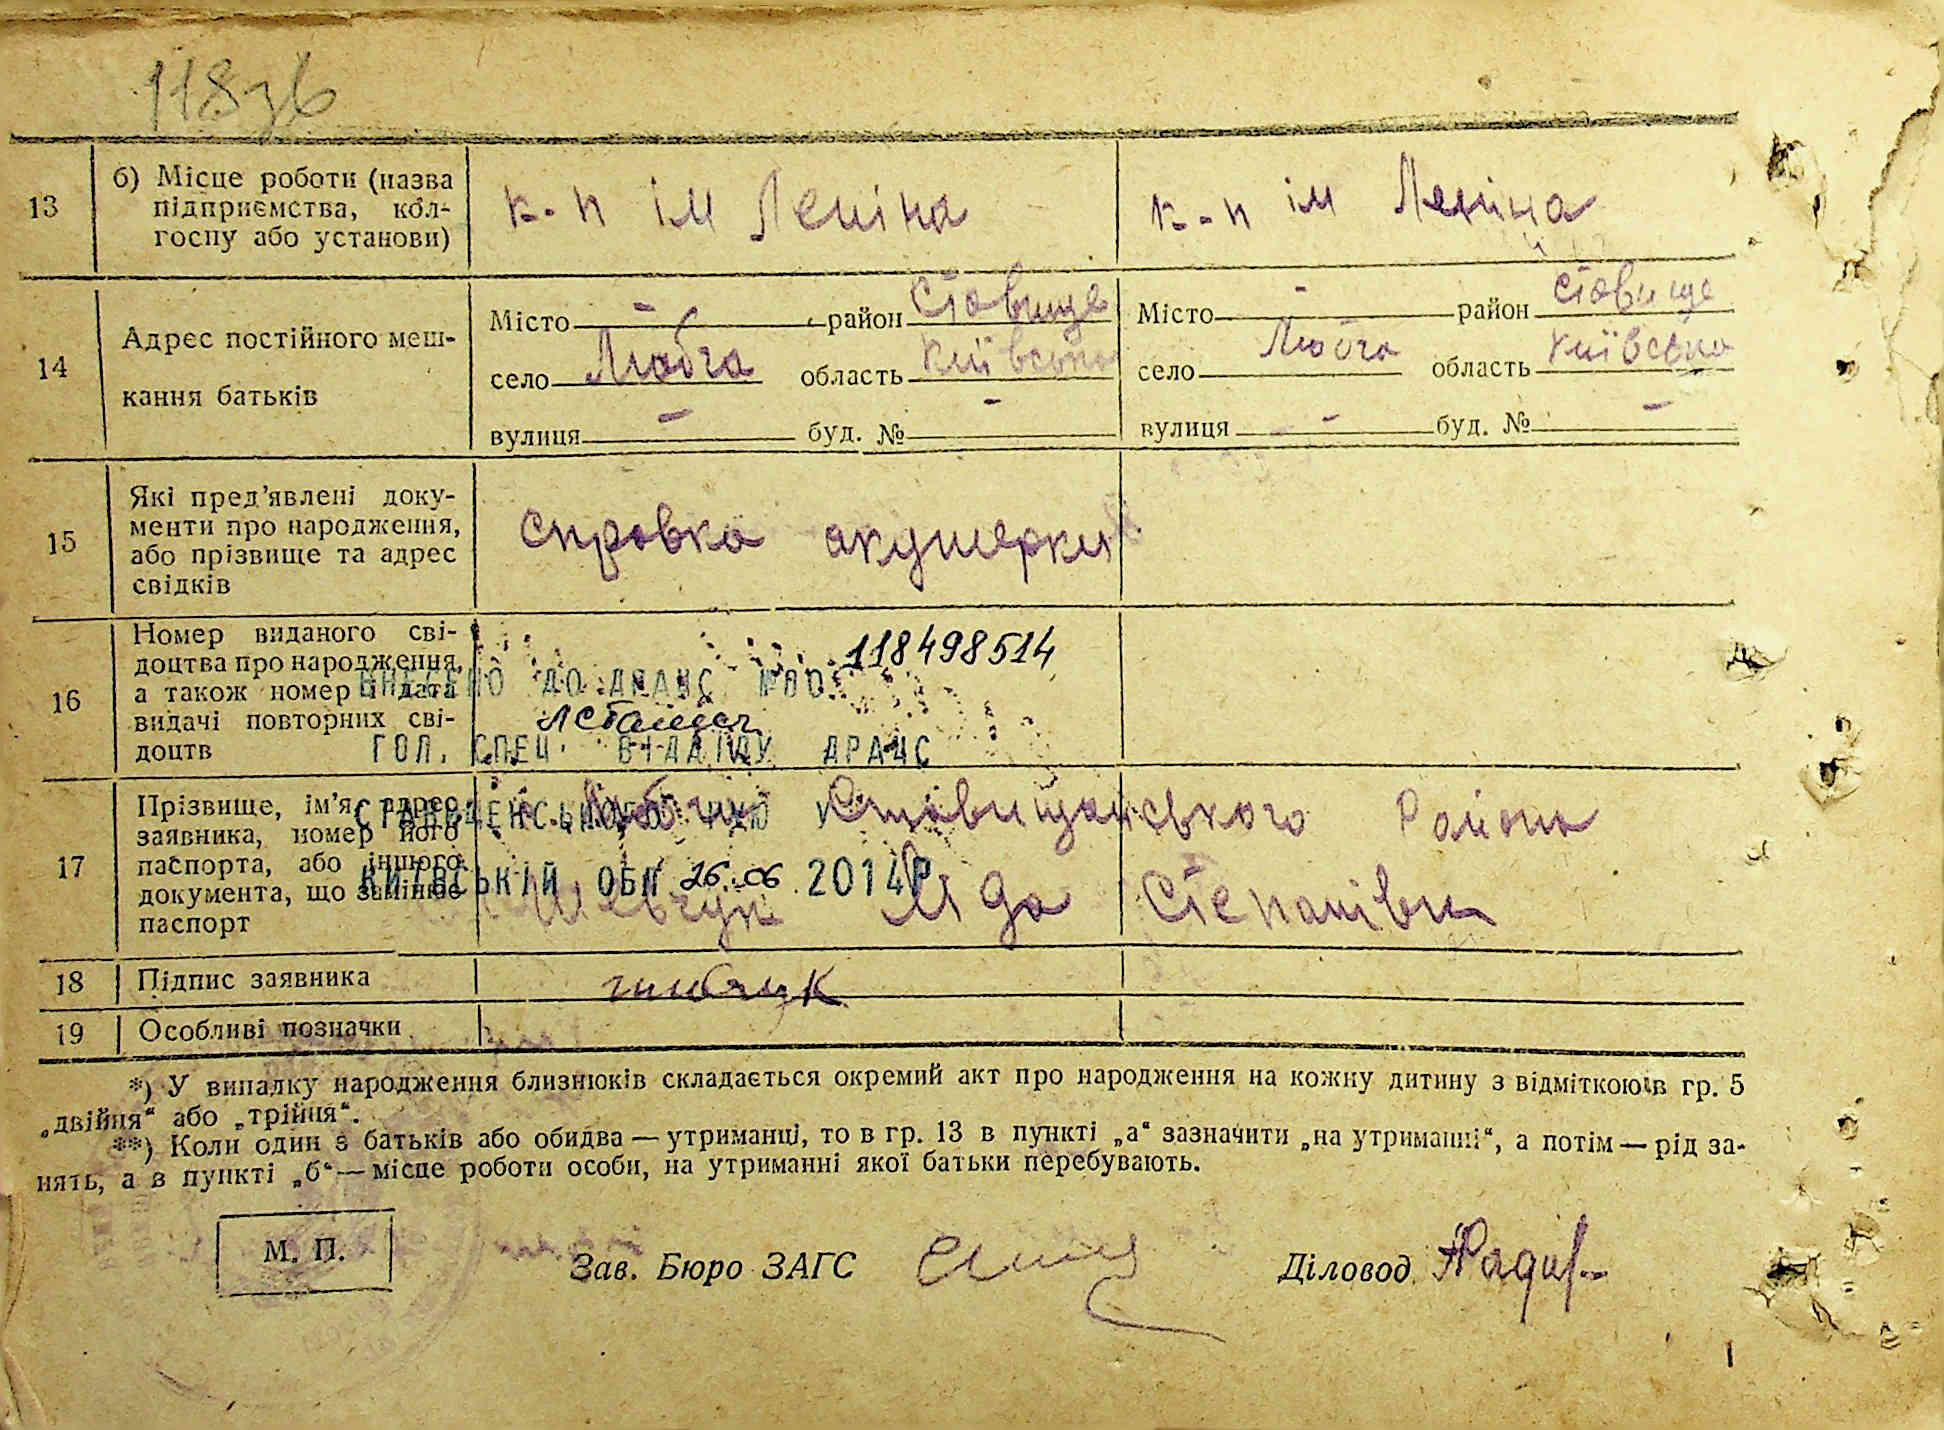 118зв
13 б) Місце роботи (назва підприємства, колгоспу або установи) к-п ім Леніна к-п ім Леніна
14 Адрес постійного мешкання батьків
Місто - район Ставище Місто - район Ставище
село Любча область Київська село Любча область Київська
вулиця - буд. № - вулиця - буд. № -
15 Які пред'явлені документи про народження, або прізвище та адрес свідків
Справка акушерки
16 Номер виданого свідоцтва про народження, а також номер і дата видачі повторних свідоцтв
118498514
ВНЕСЕНО ДО ДРАЦС
ГОЛ. СПЕЦ. ВІДДІЛУ ДРАЦС
КИЇВСЬКІЙ ОБЛ 26.06.2014Р
17 Прізвище, ім'я, адрес заявника, номер його паспорта, або іншого документа, що замінює паспорт
Ставищанського Району
Шевчук Степанівн
18 Підпис заявника
19 Особливі позначки
*) У випадку народження близнюків складається окремий акт про народження на кожну дитину з відміткою в гр. 5
„двійня“ або „трійня“.
**) Коли один з батьків або обидва — утриманці, то в гр. 13 в пункті „а“ зазначити „на утриманні“, а потім — рід за-
нять, а в пункті „б“ — місце роботи особи, на утриманні якої батьки перебувають.
М. П. Зав. Бюро ЗАГС Діловод